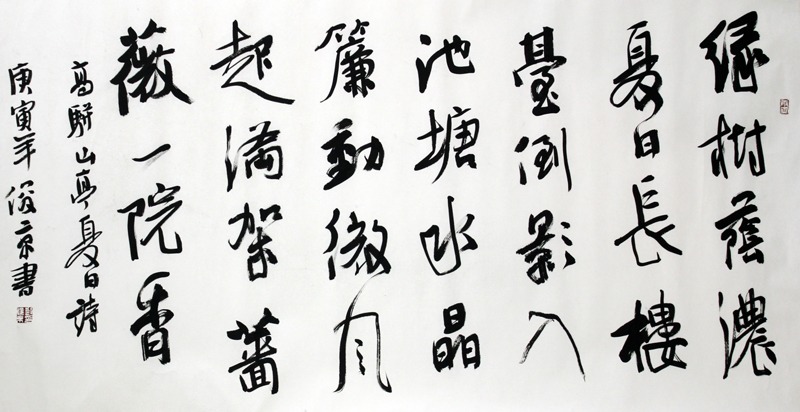 绿樹蔭濃
夏日長樓
臺倒影入
池塘水晶
簾動微風
起滿架薔
薇一院香
高駢山亭夏日詩
庚寅年俊京書